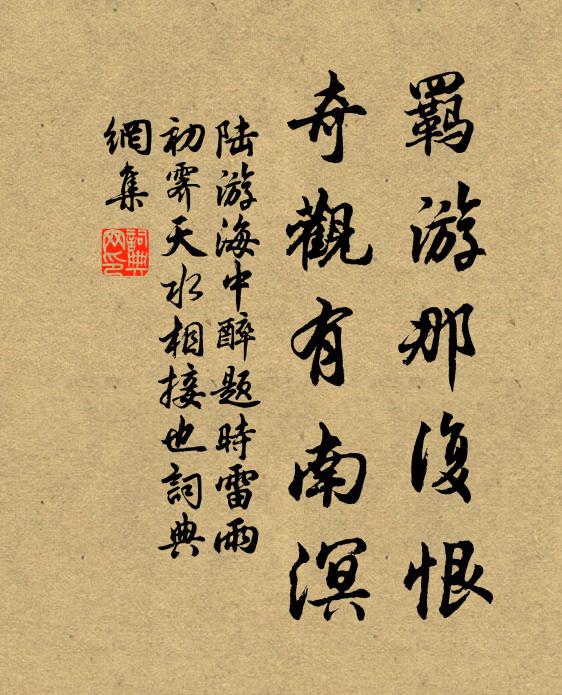 羈游那復恨
奇觀有南溟
陆游海中醉題時雷雨
初霽天水相接也詞典
網集
詞典
网印